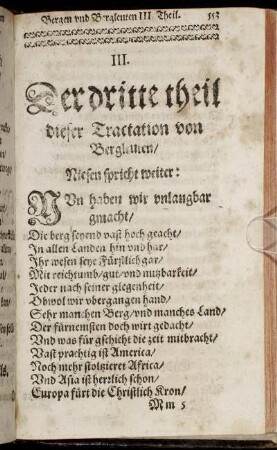 Bergen vnd Bergleuten III. Theil. 553
III.
Der dritte theil
dieser Tractation von
Bergleuten/
Niesen spricht weiter:
NVn haben wir vnlangbar
gmacht/
Die berg seyend vast hoch geacht/
In allen Landen hin vnd har/
Ihr wesen seye Fürstlich gar/
Mit reichtumb/gut/vnd nutzbarkeit/
Jeder nach seiner glegenheit/
Obwol wir vbergangen hand/
Sehr manchen Berg/vnd manches Land/
Der fürnemsten doch wirt gedacht/
Vnd was für gschicht die zeit mitbracht/
Vast prachtig ist America/
Noch mehr stoltzieret Africa/
Vnd Asia ist herrlich schon/
Europa fürt die Christlich Kron/
Mm 5